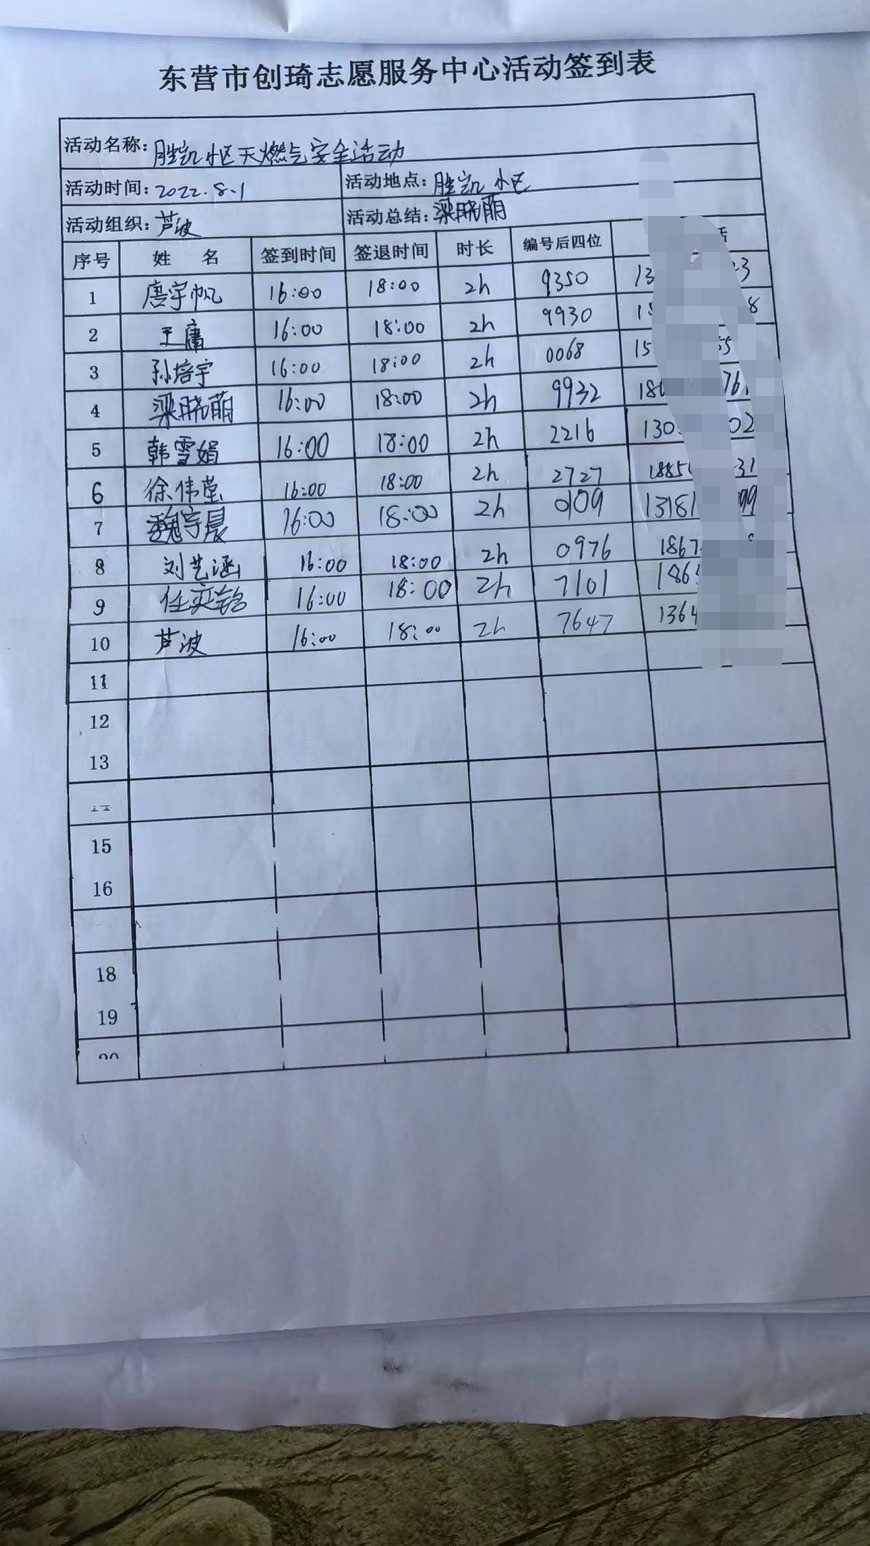 东营市创琦志愿服务中心活动签到表
活动名称: 胜凯小区天燃气安全活动
活动时间: 2022.8.1 活动地点: 胜凯小区
活动组织: 芦波 活动总结: 梁晓萌
序号 姓 名 签到时间 签退时间 时长 编号后四位 话
1 唐宇帆 16:00 18:00 2h 9350 13 3
2 王庸 16:00 18:00 2h 9930 18 8
3 孙培宇 16:00 18:00 2h 0068 15 5
4 梁晓萌 16:00 18:00 2h 9932 18 76
5 韩雪娟 16:00 18:00 2h 2216 130 02
6 徐伟莹 16:00 18:00 2h 2727 1885 31
7 魏宇晨 16:00 18:00 2h 0109 13181 99
8 刘艺涵 16:00 18:00 2h 0976 1867
9 任奕铭 16:00 18:00 2h 7101 186
10 芦波 16:00 18:00 2h 7647 1364
11
12
13
15
16
18
19
20